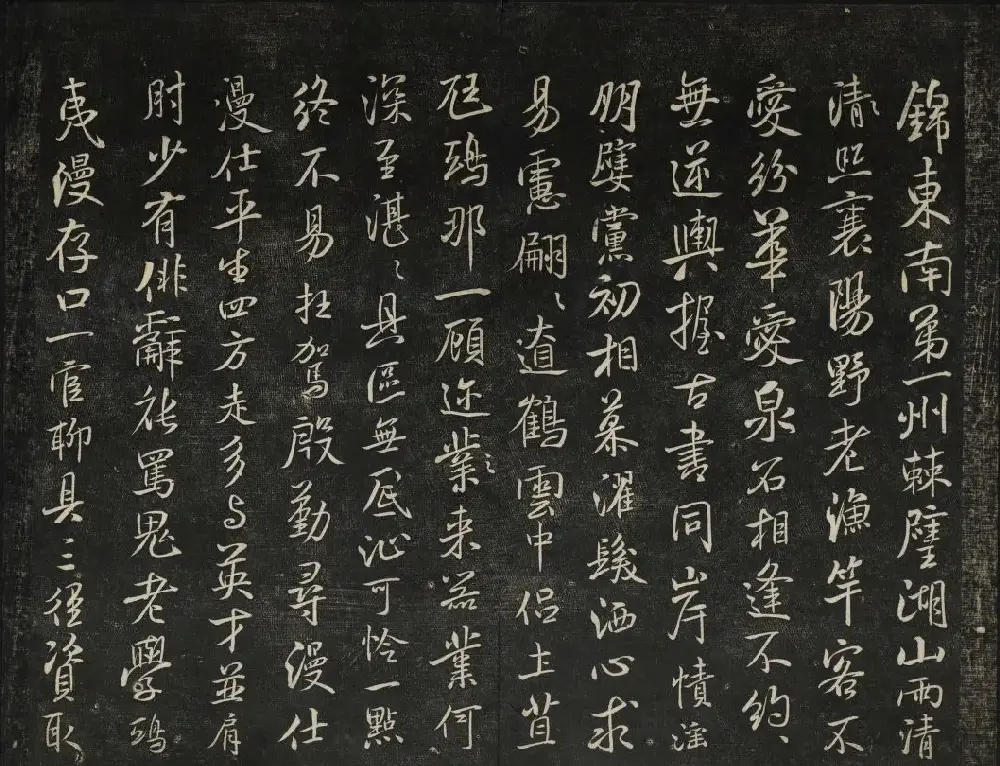 錦東南第一州棘璧湖山兩清
清照襄陽野老漁竿客不
愛紛華愛泉石相逢不約〻
無逆輿握古書同岸幘淫
朋嬖黨初相慕濯髮洒心求
易慮翩〻遼鶴雲中侶土苴
尫鴟那一顧迩業来器業何
深至湛〻具區無底沚可憐一點
終不易枉駕殷勤尋漫仕
漫仕平生四方走多与英才並肩
肘少有俳辭能罵鬼老學鴟
夷漫存口一官聊具三徑資取